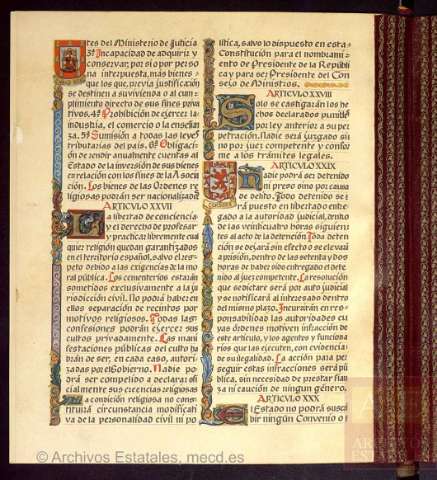 tes del Ministerio de Justicia
3ª Incapacidad de adquirir y
conservar, por sí o por perso
na interpuesta, más bienes
que los que, previa justificación
se destinen a su vivienda o al cum-
plimiento directo de sus fines priva
tivos. 4ª Prohibición de ejercer la
industria, el comercio o la enseñan
za. 5ª Sumisión a todas las leyes
tributarias del país. 6ª Obligación
de rendir anualmente cuentas al
Estado de la inversión de sus bienes
en relación con los fines de la Asocia
ción. Los bienes de las Ordenes re
ligiosas podrán ser nacionalizados
ARTICULO XXVII
La libertad de conciencia
y el derecho de profesar
y practicar libremente cual
quier religión quedan garantizados
en el territorio español, salvo el res-
peto debido a las exigencias de la mo
ral pública. Los cementerios estarán
sometidos exclusivamente a la ju
risdicción civil. No podrá haber en
ellos separación de recintos por
motivos religiosos. Todas las
confesiones podrán ejercer sus
cultos privadamente. Las mani
festaciones públicas del culto ha
brán de ser, en cada caso, autoriza
das por el Gobierno. Nadie po
drá ser compelido a declarar ofi
cialmente sus creencias religiosas
La condición religiosa no cons
tituirá circunstancia modificati
va de la personalidad civil ni po
lítica, salvo lo dispuesto en esta
Constitución para el nombramien
to de Presidente de la Repúbli
ca y para ser Presidente del Con
sejo de Ministros.
ARTICULO XXVIII
Solo se castigarán los he
chos declarados punibles
por ley anterior a su per
petración. Nadie será juzgado si
no por juez competente y confor
me a los trámites legales.
ARTICULO XXIX
Nadie podrá ser detenido
ni preso sino por causa
de delito. Todo detenido se
rá puesto en libertad o entre
gado a la autoridad judicial, dentro
de las veinticuatro horas siguien
tes al acto de la detención. Toda deten
ción se dejará sin efecto o se elevará
a prisión, dentro de las setenta y dos
horas de haber sido entregado el dete
nido al juez competente. La resolución
que se dictare será por auto judicial
y se notificará al interesado dentro
del mismo plazo. Incurrirán en res
ponsabilidad las autoridades cu
yas órdenes motiven infracción de
este artículo, y los agentes y funciona
rios que las ejecuten, con evidencia
de su ilegalidad. La acción para per
seguir estas infracciones será pú
blica, sin necesidad de prestar fian
za ni caución de ningún género.
ARTICULO XXX
El Estado no podrá suscri
bir ningún Convenio o
© Archivos Estatales, mecd.es